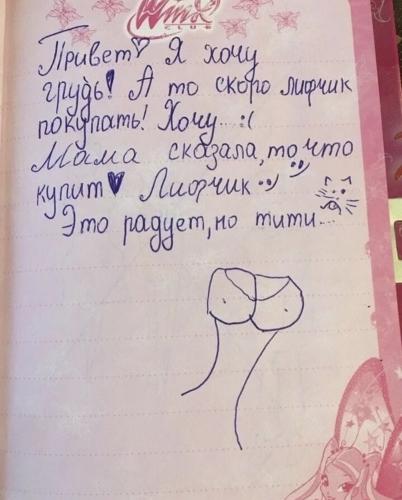 Winx
CLUB
Привет♡ Я хочу
грудь! А то скоро лифчик
покупать! Хочу... :(
Мама сказала, то что
купит♥ Лифчик :)
Это радует, но тити...